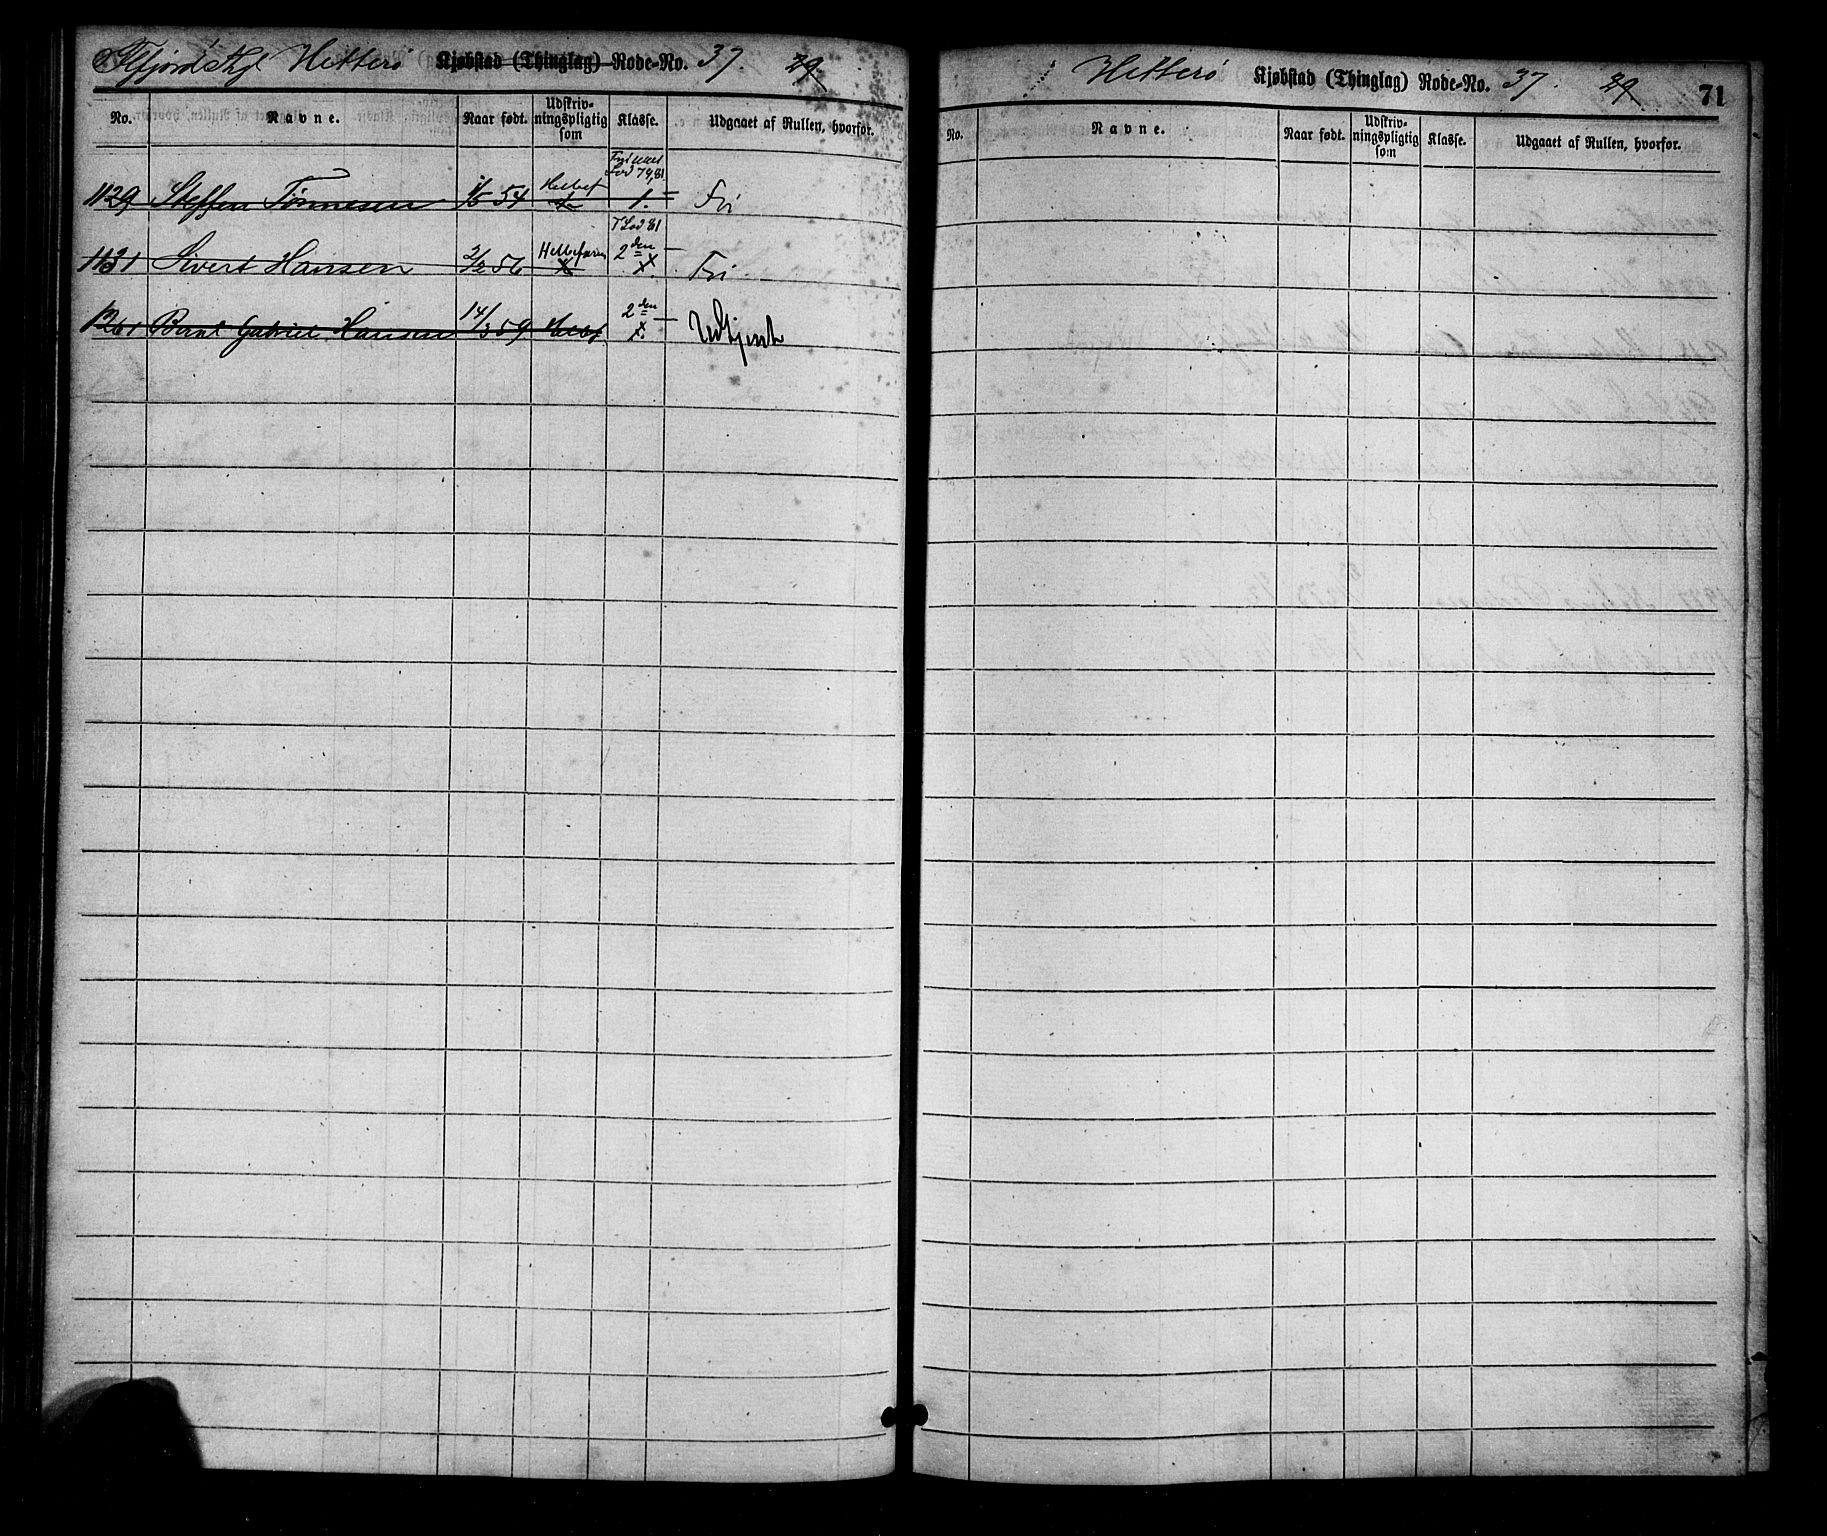 Hitterö Kjøbstad (Thinglag) Rode-No. 37. 29
No. Navne. Naar født. Udskrivningspligtig som Klasse. Udgaaet af Rullen, hvorfor.
1129 Steffen Tönnesen 1/5 54 1. Fri
T Lod 81
1131 Sivert Hansen 2/2 56 2den x Fri
1261 Bernt Gabriel Hansen 14/3 59 2den x. Udtjent
Hitterö Kjøbstad (Thinglag) Rode-No. 37. 29 71
No. Navne. Naar født. Udskrivningspligtig som Klasse. Udgaaet af Rullen, hvorfor.